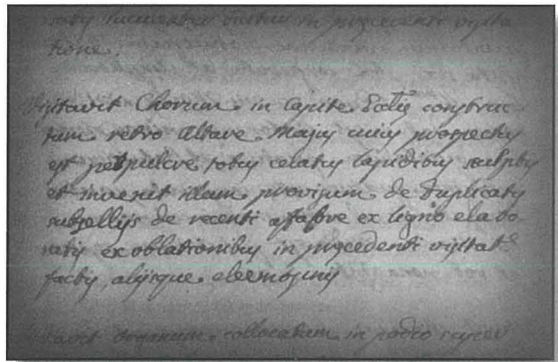 in precedenti visita
tione.
Visitavit Chorum in Capite Eccłię construc
tum retro Altare Majus cuius prospectus
est perpulcre totus celatus lapidibus sculptis
et invenit illum provisum de duplicatis
subsellijs de recenti a fabre ex ligno elabo
ratis ex oblationibus in precedenti visitat.e
factis, alijsque eleemosinis
organum collocatum in podio super